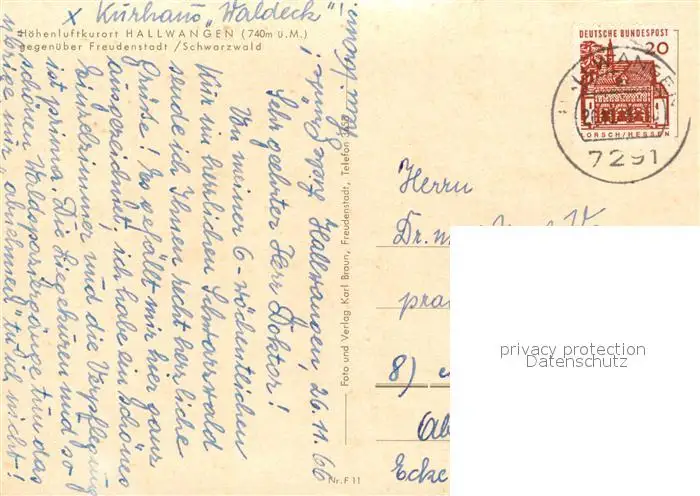 x Kurhaus „Waldeck"!
Höhenluftkurort HALLWANGEN (740m ü.M.)
gegenüber Freudenstadt / Schwarzwald
Hallwangen, 26.11.66
Sehr geehrter Herr Doktor!
Von meiner 6-wöchentlichen
Kur im herrlichen Schwarzwald
sende ich Ihnen recht herzliche
Grüße! Es gefällt mir hier ganz
ausgezeichnet, ich habe ein schönes
Einzelzimmer und die Verpflegung
ist prima. Die Liegekuren und so
schönen Waldspaziergänge tun das
übrige nur „abnehmen" tu ich nicht!
Foto und Verlag Karl Braun, Freudenstadt, Telefon
Nr. F 11
DEUTSCHE BUNDESPOST
20
LORSCH/HESSEN
HALLWANGEN
7291
Herrn
Dr. m
pra
8)
Ecke
privacy protection
Datenschutz